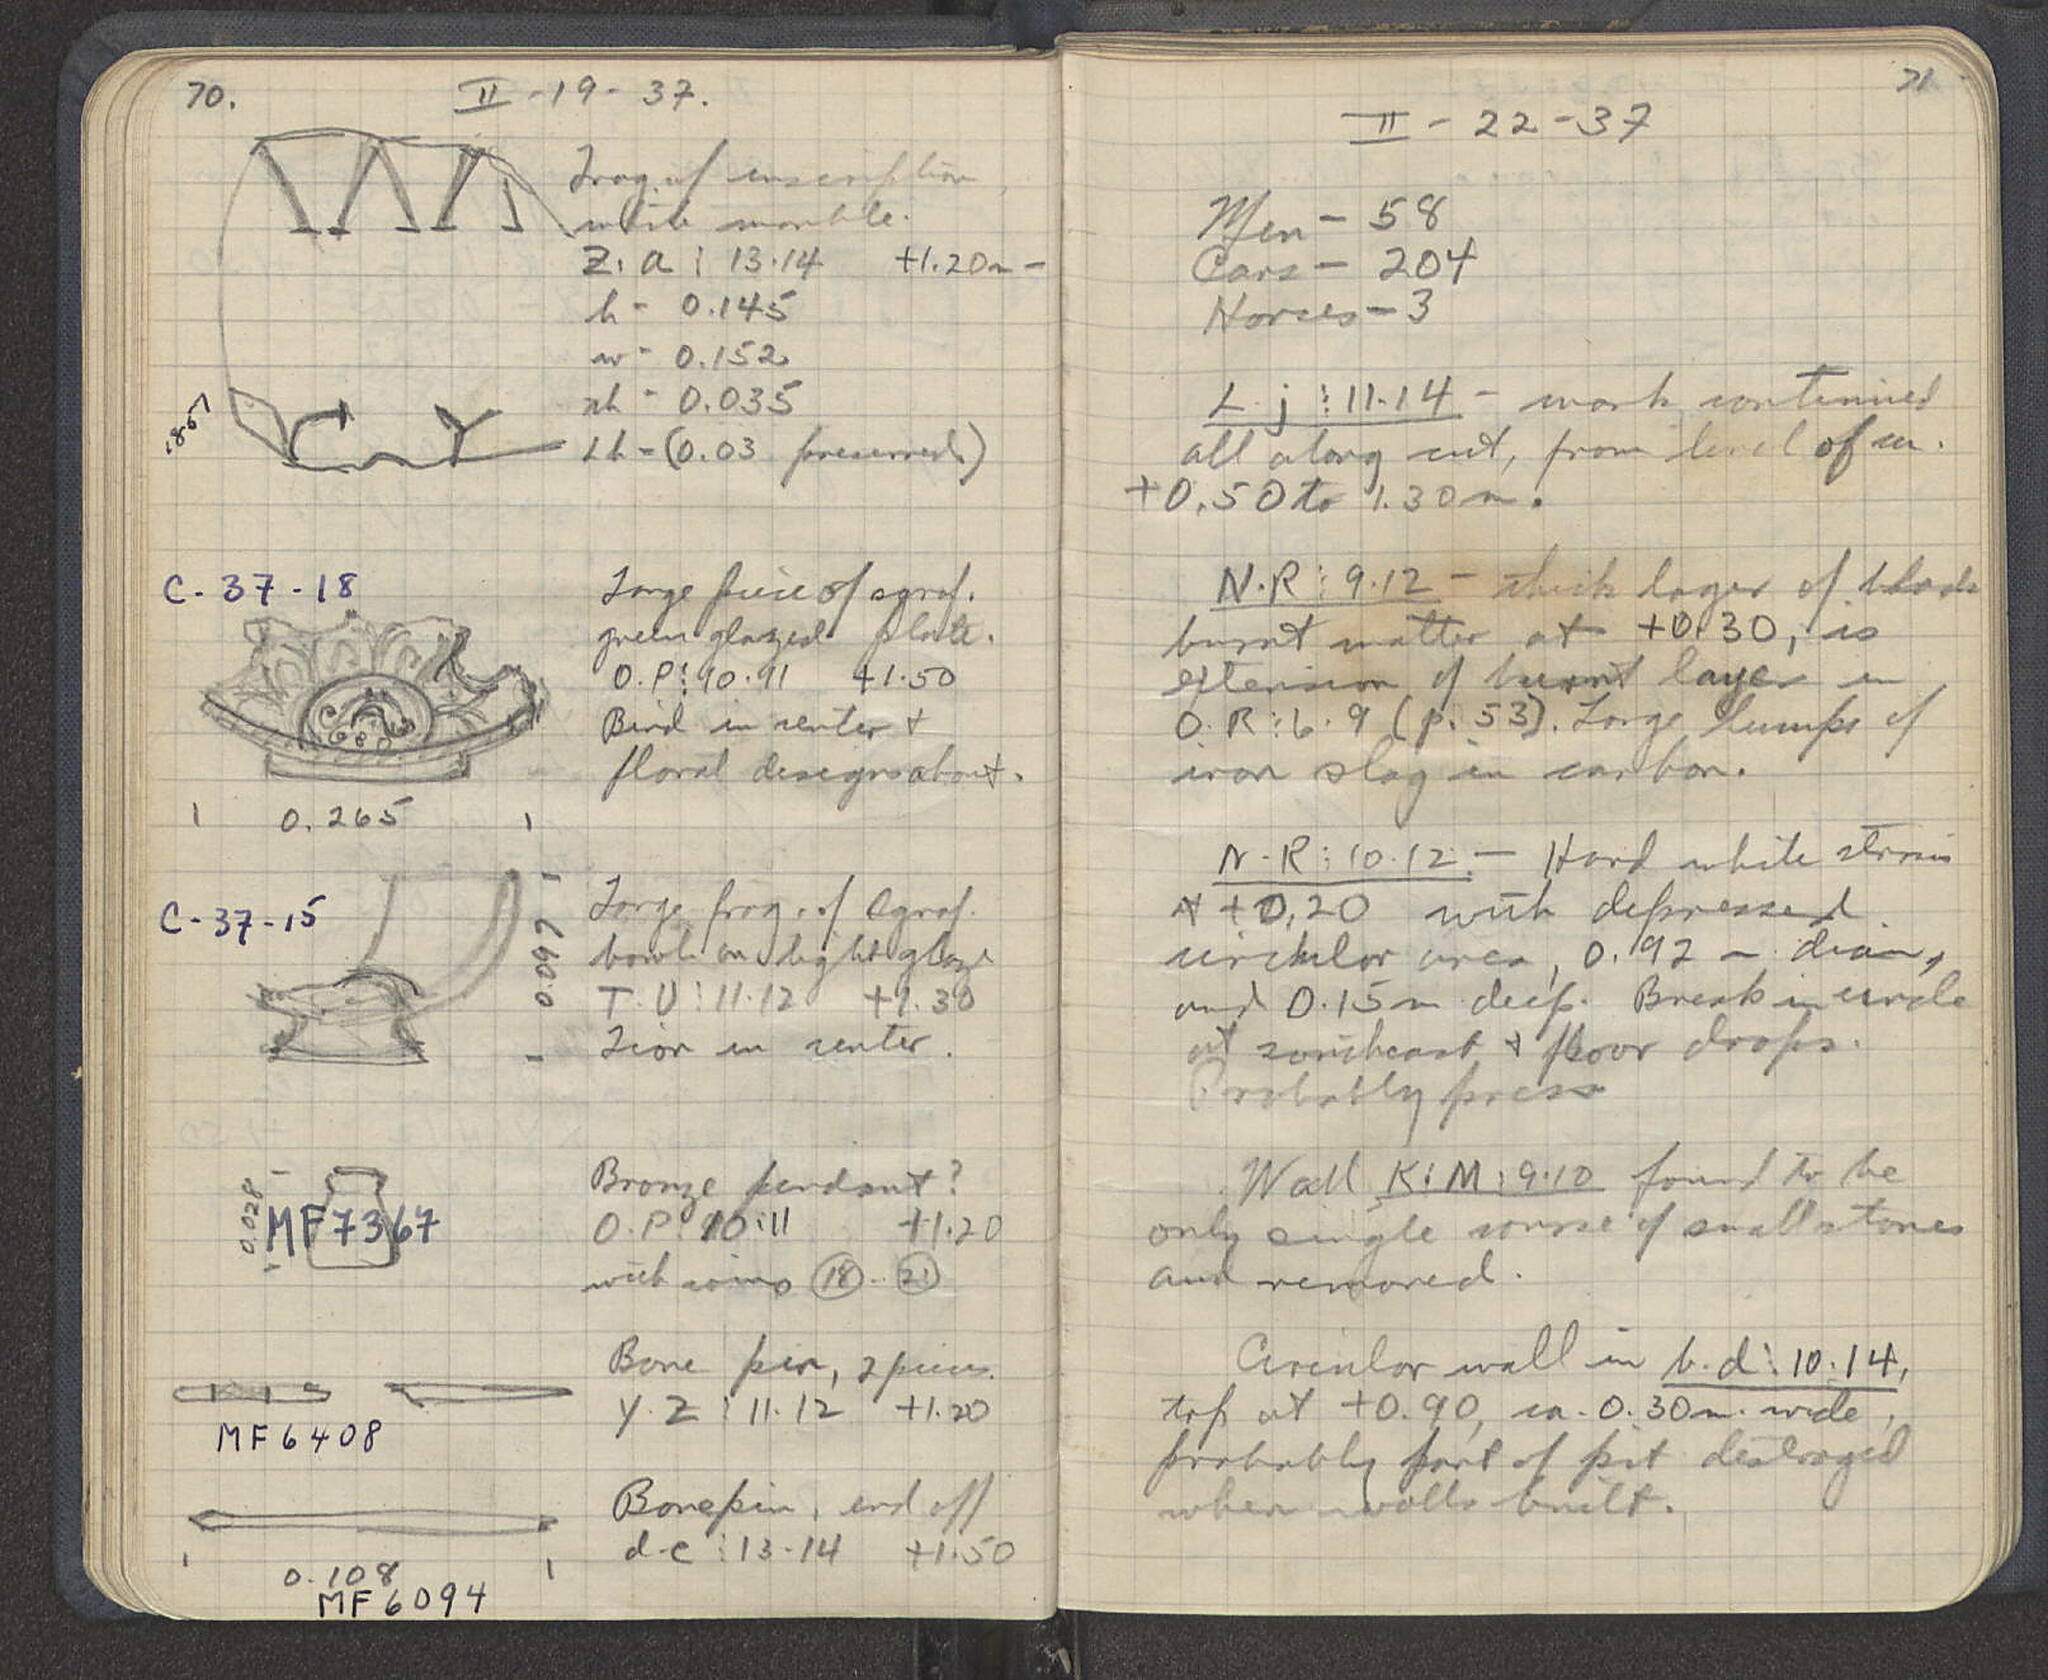 70.
II-19-37.
Frag. of inscription,
white marble.
Z.a:13.14 +1.20m-
h- 0.145
w- 0.152
th- 0.035
Lh-(0.03 preserved)
1857
C Y
C-37-18
Large piece of sgraf.
green glazed plate.
O.P:10.11 +1.50
Bird in center +
floral designs about.
0.265
C-37-15
0.097
Large frag. of Sgraf.
bowl on light glaze
T.U:11.12 +1.30
Lion in center.
0.028
MF7367
Bronze pendant?
O.P:10:11 +1.20
with coins 18-21
Bone pin, 2 pieces.
Y.Z:11.12 +1.20
MF6408
Bone pin, end off
d-e:13-14 +1.50
0.108
MF6094
71
II-22-37
Men-58
Cars-204
Horses-3
L.j:11.14- work continued
all along cut, from level of ca.
+0.50 to 1.30m.
N.R:9.12- thick layer of black
burnt matter at +0.30, is
extension of burnt layer in
O.R:6.9 (p.53). Large lumps of
iron slag in carbon.
N-R:10.12- Hard white
+0.20 with depressed
circular area, 0.92 m diam,
and 0.15m deep. Break in circle
at southeast + floor drops.
Probably press
Wall K:M:9.10 found to be
only single course of small stones
and removed.
Circular wall in b.d:10.14,
top at +0.90, ca. 0.30m. wide,
probably part of pit destroyed
when walls built.